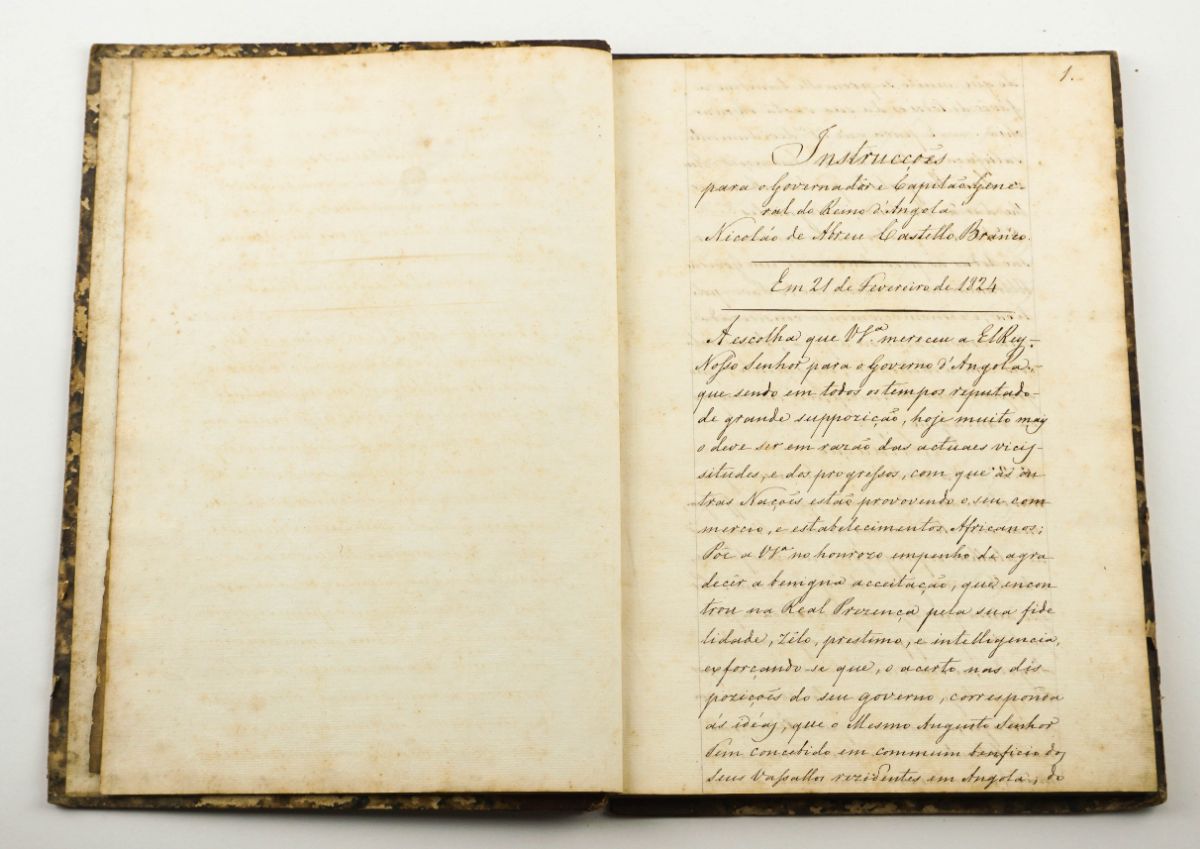 1.
Instrucções
para o Governador e Capitão Gene-
ral do Reino d'Angola
Nicoláo de Abreu Castello Branco.
Em 21 de Fevereiro de 1824
A escolha que VSª mereceu a ElRey
Nosso Senhor para o Governo d'Angola,
que sendo em todos os tempos reputado
de grande suppozição, hoje muito mais
o deve ser em razão das actuaes vicis
situdes, e dos progressos, com que as ou
tras Nações estão provovendo o seu com
mercio, e estabelecimentos Africanos;
Põe a VSª no honrozo empenho de agra
decer a benigna acceitação, que encon
trou na Real Prezença pela sua fide
lidade, zelo, prestimo, e intelligencia,
exforçando-se que, o acerto nas dis
pozições do seu governo, corresponda
ás idéas, que o Mesmo Augusto Senhor
Tem concebido em commum beneficio dos
seus Vassallos rezidentes em Angola, do